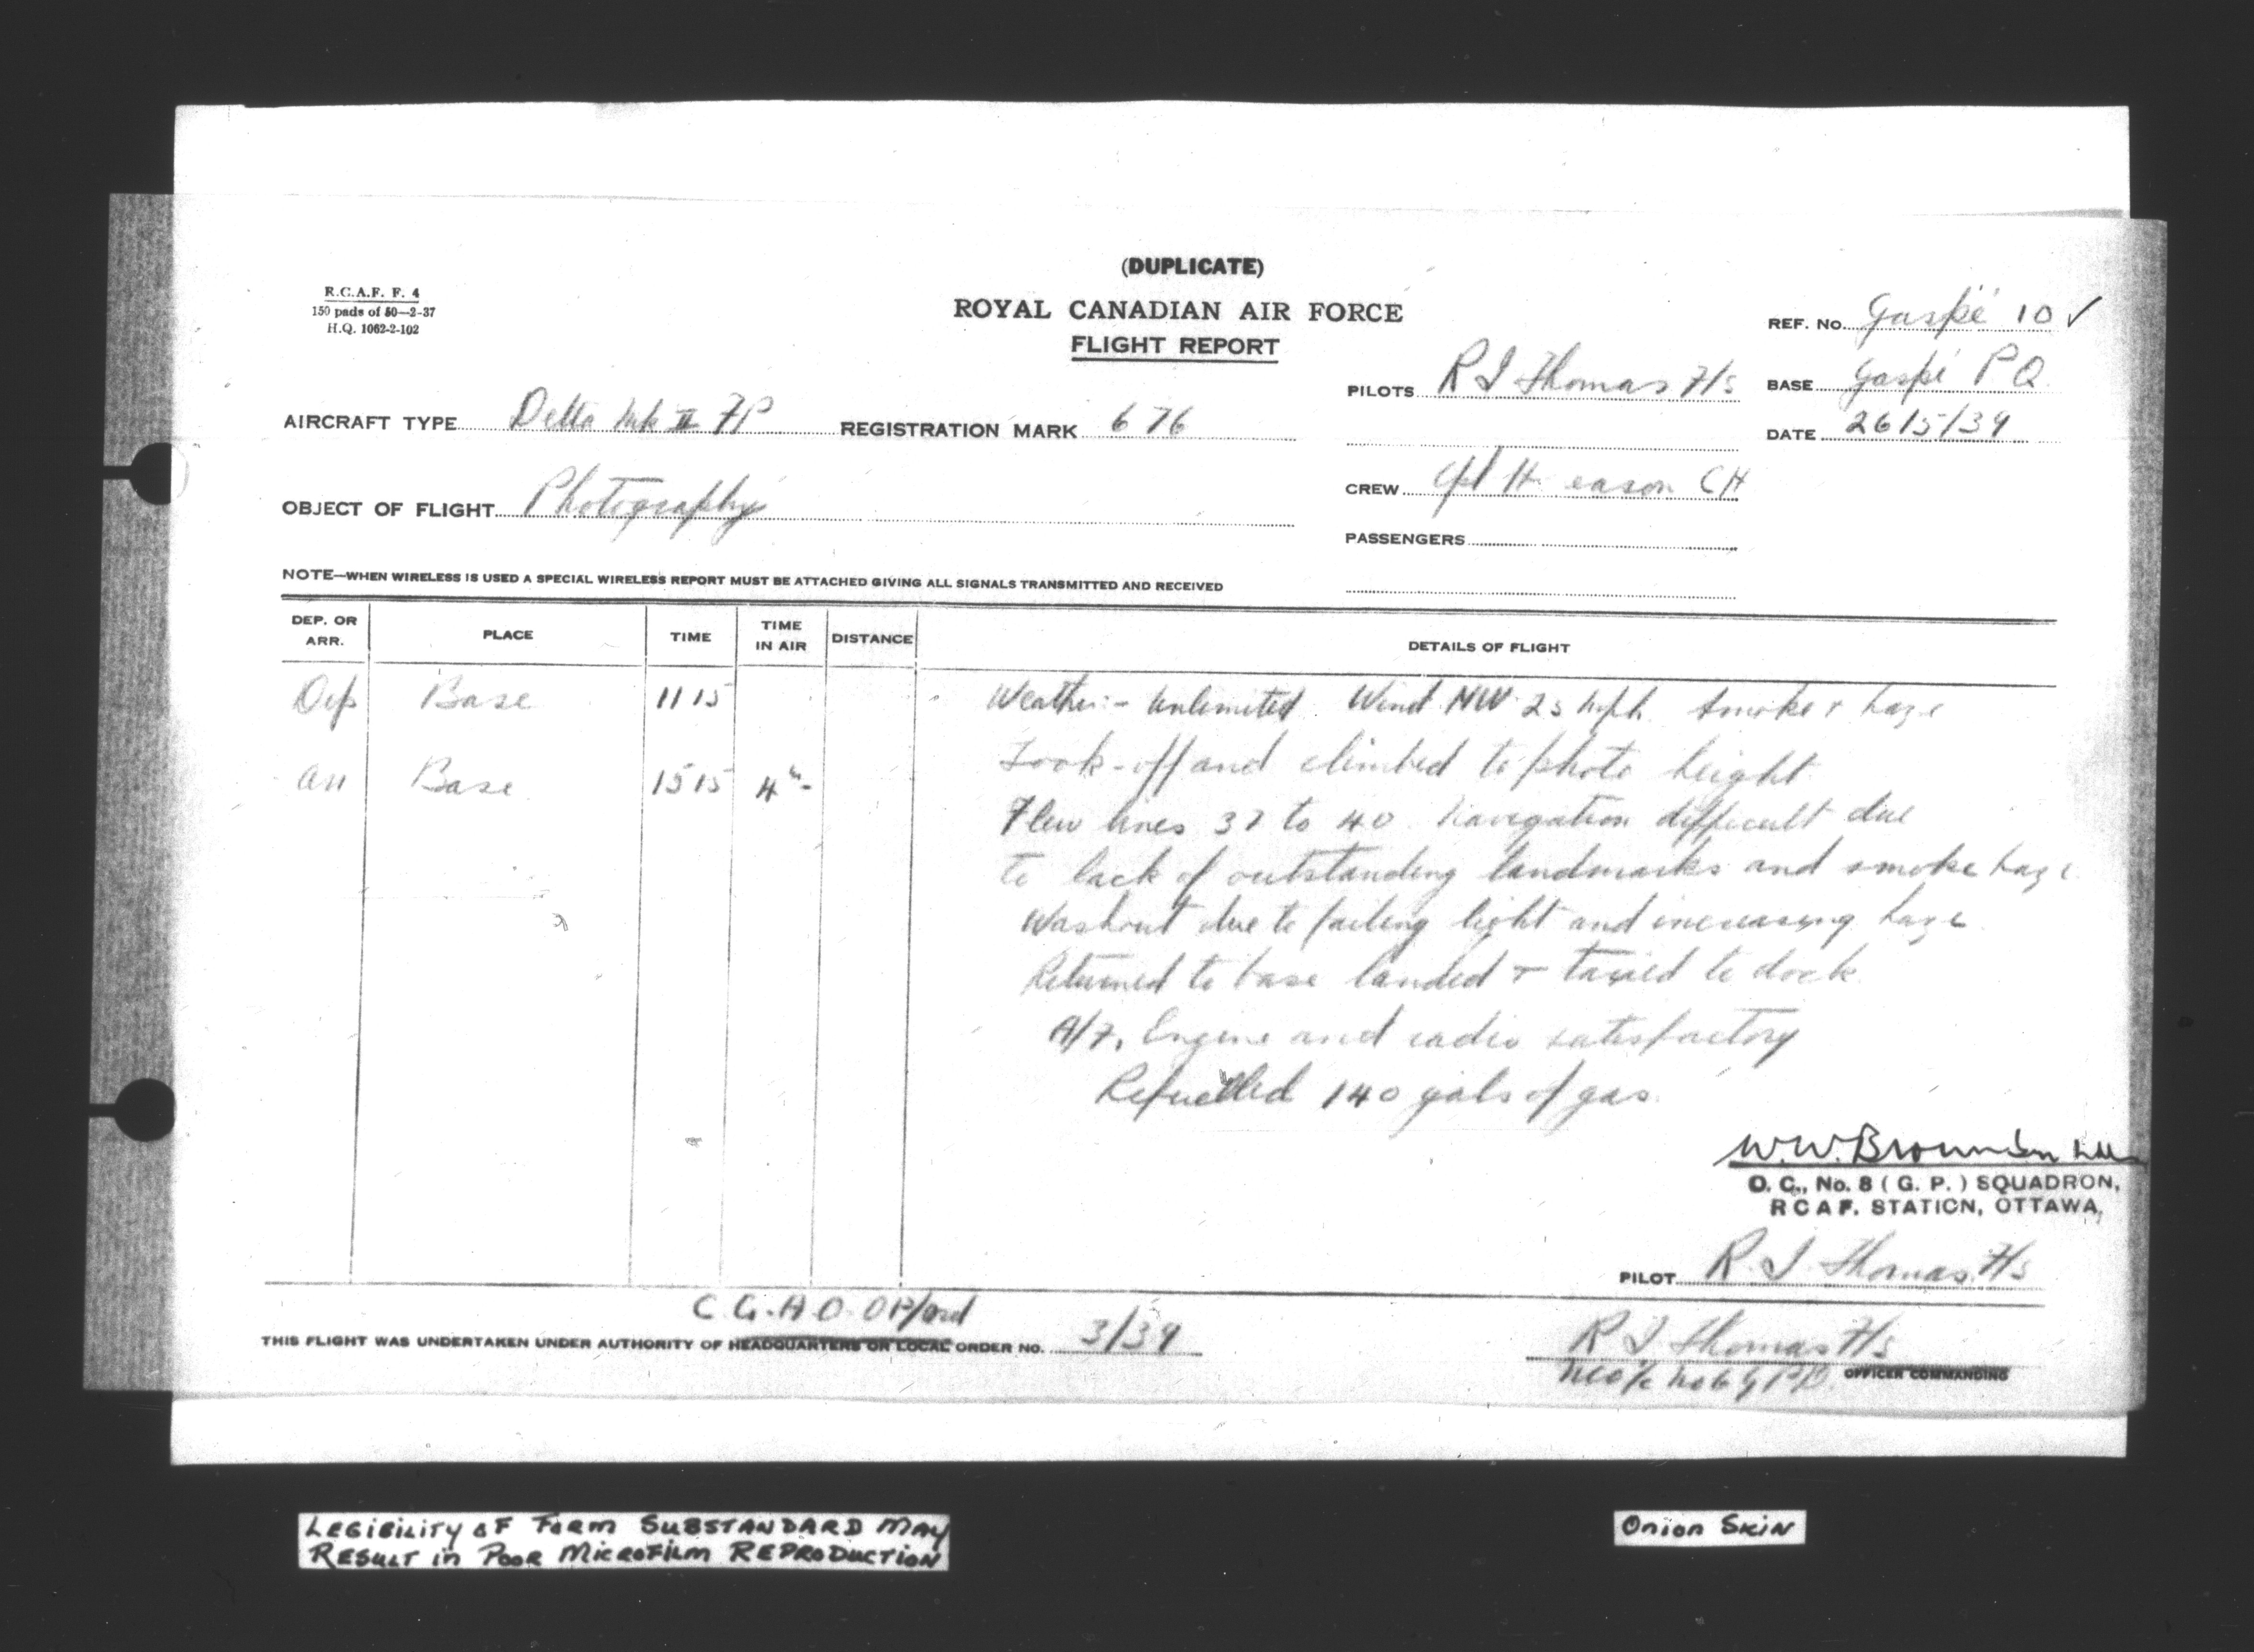 (DUPLICATE)
R.C.A.F. F. 4
150 pads of 50—2-37
H.Q. 1062-2-102
ROYAL CANADIAN AIR FORCE
FLIGHT REPORT
REF. No. Gaspé 10 ✓
PILOTS R I Thomas F/s
BASE Gaspé P Q
AIRCRAFT TYPE Delta Mk II FP
REGISTRATION MARK 676
DATE 26/5/39
CREW Cpl H eason CH
OBJECT OF FLIGHT Photography
PASSENGERS
NOTE—WHEN WIRELESS IS USED A SPECIAL WIRELESS REPORT MUST BE ATTACHED GIVING ALL SIGNALS TRANSMITTED AND RECEIVED
DEP. OR ARR. PLACE TIME TIME IN AIR DISTANCE DETAILS OF FLIGHT
Dep Base 1115 Weather:- Unlimited. Wind NW 25 mph. Smoke & haze
Took-off and climbed to photo height
Arr Base 1515 4 h-
Flew lines 37 to 40. Navigation difficult due
to lack of outstanding landmarks and smoke haze
Washout due to failing light and increasing haze
Returned to base landed & taxied to dock
A/F, Engine and radio satisfactory
Refuelled 140 gals of gas.
W.W. Brown
O. C., No. 8 ( G. P. ) SQUADRON,
R C A F. STATION, OTTAWA,
PILOT R. I. Thomas F/s
C.G.A.O. OP/ord
THIS FLIGHT WAS UNDERTAKEN UNDER AUTHORITY OF HEADQUARTERS OR LOCAL ORDER NO. 3/39
R I Thomas F/s
OFFICER COMMANDING
LEGIBILITY OF FORM SUBSTANDARD MAY
RESULT in POOR MICROFILM REPRODUCTION
Onion Skin